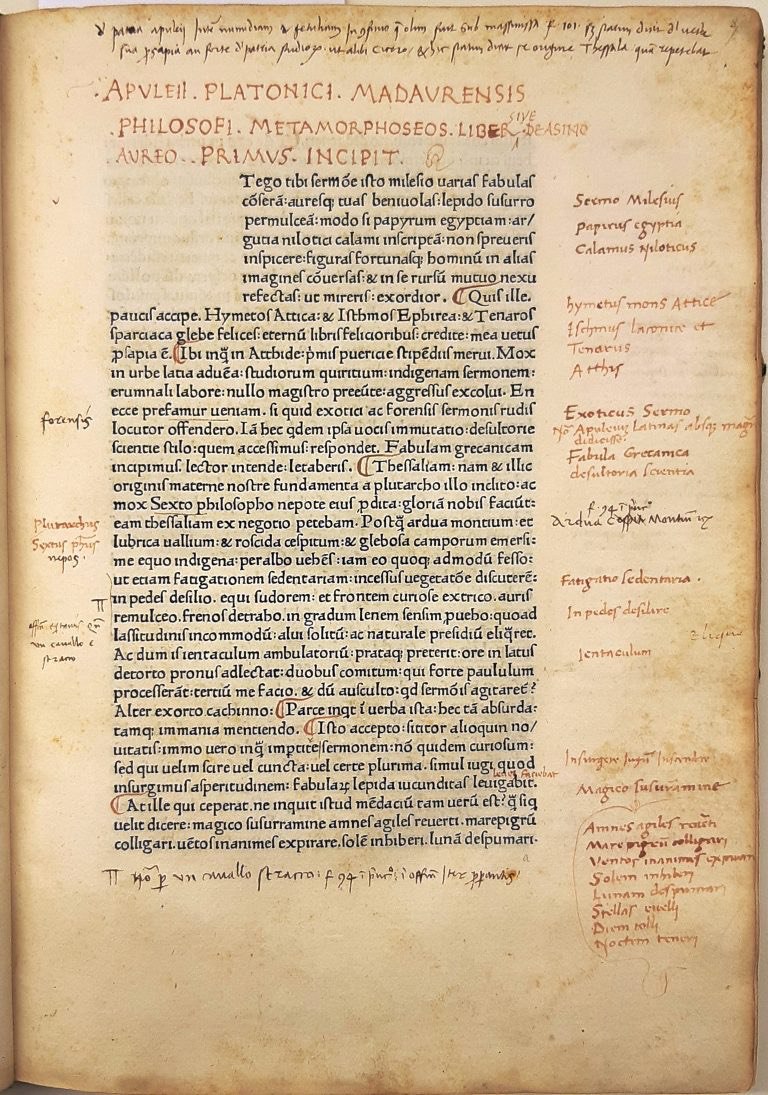 patria apuleii
APVLEII. PLATONICI. MADAVRENSIS
PHILOSOFI. METAMORPHOSEOS. LIBER SIVE DE ASINO
AVREO. PRIMVS. INCIPIT.
Tego tibi sermōe isto milesio varias fabulas
cōserā: auresq; tuas beniuolas: lepido susurro
permulceā: modo si papyrum egyptiam: ar/
gutia nilotici calami inscriptā: non spreueris
inspicere: figuras fortunasq; hominū in alias
imagines cōuersas: & in se rursū mutuo nexu
refectas: ut mireris: exordior. Quis ille.
paucis accipe. Hymetos Attica: & Isthmos Ephirea: & Tenaros
sparciaca glebe felices: eternū libris felicioribus: credite: mea vetus
ꝓsapia ē. Ibi inq̄ in Atthide: p̄mis puericie stipēdiis merui. Mox
in urbe latia aduēa: studiorum quiritium: indigenam sermonem:
erumnali labore: nullo magistro preeūte: aggressus excolui. En
ecce prefamur ueniam. si quid exotici ac forensis sermonis rudis
locutor offendero. Iā hec qdem ipsa vocis immutatio: desultorie
scientie stilo: quem accessimus: respondet. Fabulam grecanicam
incipimus. lector intende: letaberis. Thessaliam: nam & illic
originis materne nostre fundamenta a plutarcho illo inclito: ac
mox Sexto philosopho nepote eius ꝓdita: gloriā nobis faciūt:
eam thessaliam ex negotio petebam. Postq̄ ardua montium: et
lubrica uallium: & roscida cespitum: & glebosa camporum emersi:
me equo indigena: peralbo uehēs: iam eo quoq; admodū fesso:
ut etiam fatigationem sedentariam: incessus uegetatōe discuterē:
in pedes desilio. equi sudorem: et frontem curiose extrico. auris
remulceo. frenos detraho. in gradum lenem sensim ꝓueho: quoad
lassitudinis incommodū: alui solitū: ac naturale presidiū eliq̄ret.
Ac dum is ientaculum ambulatoriū: prataq; preterit: ore in latus
detorto pronus adlectat: duobus comitum: qui forte paululum
processerāt: tertiū me facio. & dū ausculto: qd sermōis agitaret?
Alter exorto cachinno: Parce inqt ī verba ista: hec tā absurda:
tamq; immania mentiendo. Isto accepto: sititor alioquin no/
uitatis: immo vero inq̄ impertite sermonem: nō quidem curiosum:
sed qui uelim scire uel cuncta: uel certe plurima. simul iugi quod
insurgimus asperitudinem: fabulaꝝ lepida iucunditas leuigabit.
At ille qui ceperat. ne inquit istud mēdaciū tam uerū est? q̄ siq
uelit dicere: magico susurramine amnes agiles reuerti. mare pigrū
colligari. uētos inanimes expirare. solē inhiberi. lunā despumari.
Sermo Milesius
papirus egyptia
Calamus Niloticus
hymetus mons Attice
Ischmus laconice et
Tenarus
Atthis
Exoticus Sermo
Apuleius Latinas absq; magro
didicisse.
Fabula Grecanica
desultoria scientia
Ardua Montium
Fatigatio sedentaria.
In pedes desilire
Ientaculum
Magico susuramine
Amnes agiles reuerti
Mare pigrum colligari
Ventos inanimes expirari
Solem inhiberi
Lunam despumari
Stellas euelli
Diem tolli
Noctem teneri
forensis
Plutarchus
Sextus phūs
nepos.
un cauallo
stracco
un cauallo stracco